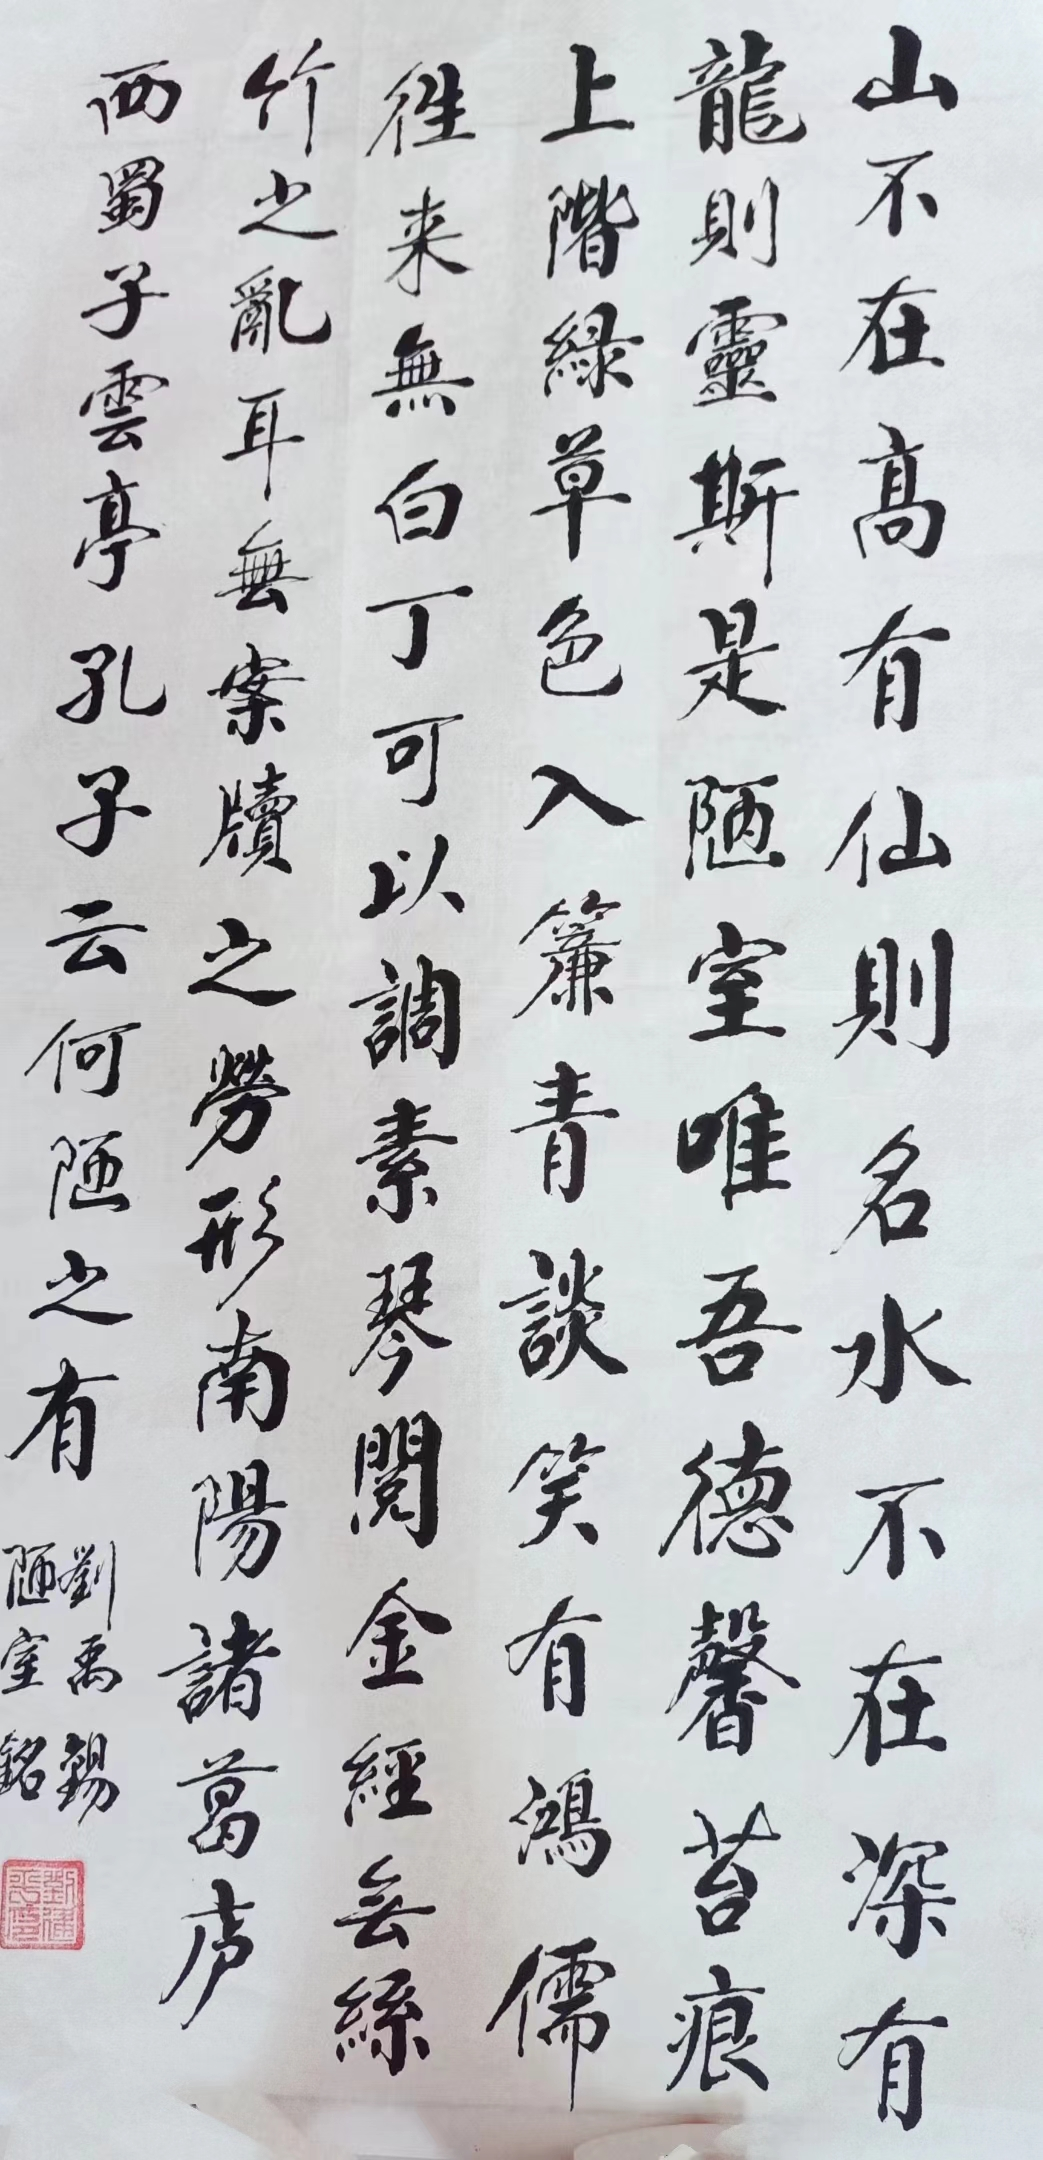 山不在高有仙則名水不在深有
龍則靈斯是陋室唯吾德馨苔痕
上階緑草色入簾青談笑有鴻儒
往来無白丁可以調素琴閱金經無絲
竹之亂耳無案牘之勞形南陽諸葛庐
西蜀子雲亭孔子云何陋之有
劉禹錫
陋室銘